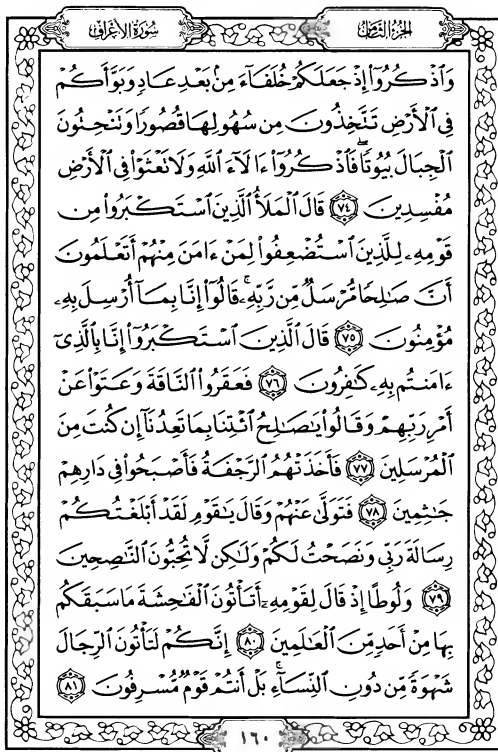 سُورَةُ الْأَعْرَافِ
الجُزْءُ الثَّامِنُ
وَٱذْكُرُوٓا۟ إِذْ جَعَلَكُمْ خُلَفَآءَ مِنۢ بَعْدِ عَادٍ وَبَوَّأَكُمْ
فِى ٱلْأَرْضِ تَتَّخِذُونَ مِن سُهُولِهَا قُصُورًا وَتَنْحِتُونَ
ٱلْجِبَالَ بُيُوتًا ۖ فَٱذْكُرُوٓا۟ ءَالَآءَ ٱللَّهِ وَلَا تَعْثَوْا۟ فِى ٱلْأَرْضِ
مُفْسِدِينَ ٧٤ قَالَ ٱلْمَلَأُ ٱلَّذِينَ ٱسْتَكْبَرُوا۟ مِن
قَوْمِهِۦ لِلَّذِينَ ٱسْتُضْعِفُوا۟ لِمَنْ ءَامَنَ مِنْهُمْ أَتَعْلَمُونَ
أَنَّ صَـٰلِحًا مُّرْسَلٌ مِّن رَّبِّهِۦ ۚ قَالُوٓا۟ إِنَّا بِمَآ أُرْسِلَ بِهِۦ
مُؤْمِنُونَ ٧٥ قَالَ ٱلَّذِينَ ٱسْتَكْبَرُوٓا۟ إِنَّا بِٱلَّذِىٓ
ءَامَنتُم بِهِۦ كَـٰفِرُونَ ٧٦ فَعَقَرُوا۟ ٱلنَّاقَةَ وَعَتَوْا۟ عَنْ
أَمْرِ رَبِّهِمْ وَقَالُوا۟ يَـٰصَـٰلِحُ ٱئْتِنَا بِمَا تَعِدُنَآ إِن كُنتَ مِنَ
ٱلْمُرْسَلِينَ ٧٧ فَأَخَذَتْهُمُ ٱلرَّجْفَةُ فَأَصْبَحُوا۟ فِى دَارِهِمْ
جَـٰثِمِينَ ٧٨ فَتَوَلَّىٰ عَنْهُمْ وَقَالَ يَـٰقَوْمِ لَقَدْ أَبْلَغْتُكُمْ
رِسَالَةَ رَبِّى وَنَصَحْتُ لَكُمْ وَلَـٰكِن لَّا تُحِبُّونَ ٱلنَّـٰصِحِينَ
٧٩ وَلُوطًا إِذْ قَالَ لِقَوْمِهِۦٓ أَتَأْتُونَ ٱلْفَـٰحِشَةَ مَا سَبَقَكُم
بِهَا مِنْ أَحَدٍ مِّنَ ٱلْعَـٰلَمِينَ ٨٠ إِنَّكُمْ لَتَأْتُونَ ٱلرِّجَالَ
شَهْوَةً مِّن دُونِ ٱلنِّسَآءِ ۚ بَلْ أَنتُمْ قَوْمٌ مُّسْرِفُونَ ٨١
١٦٠